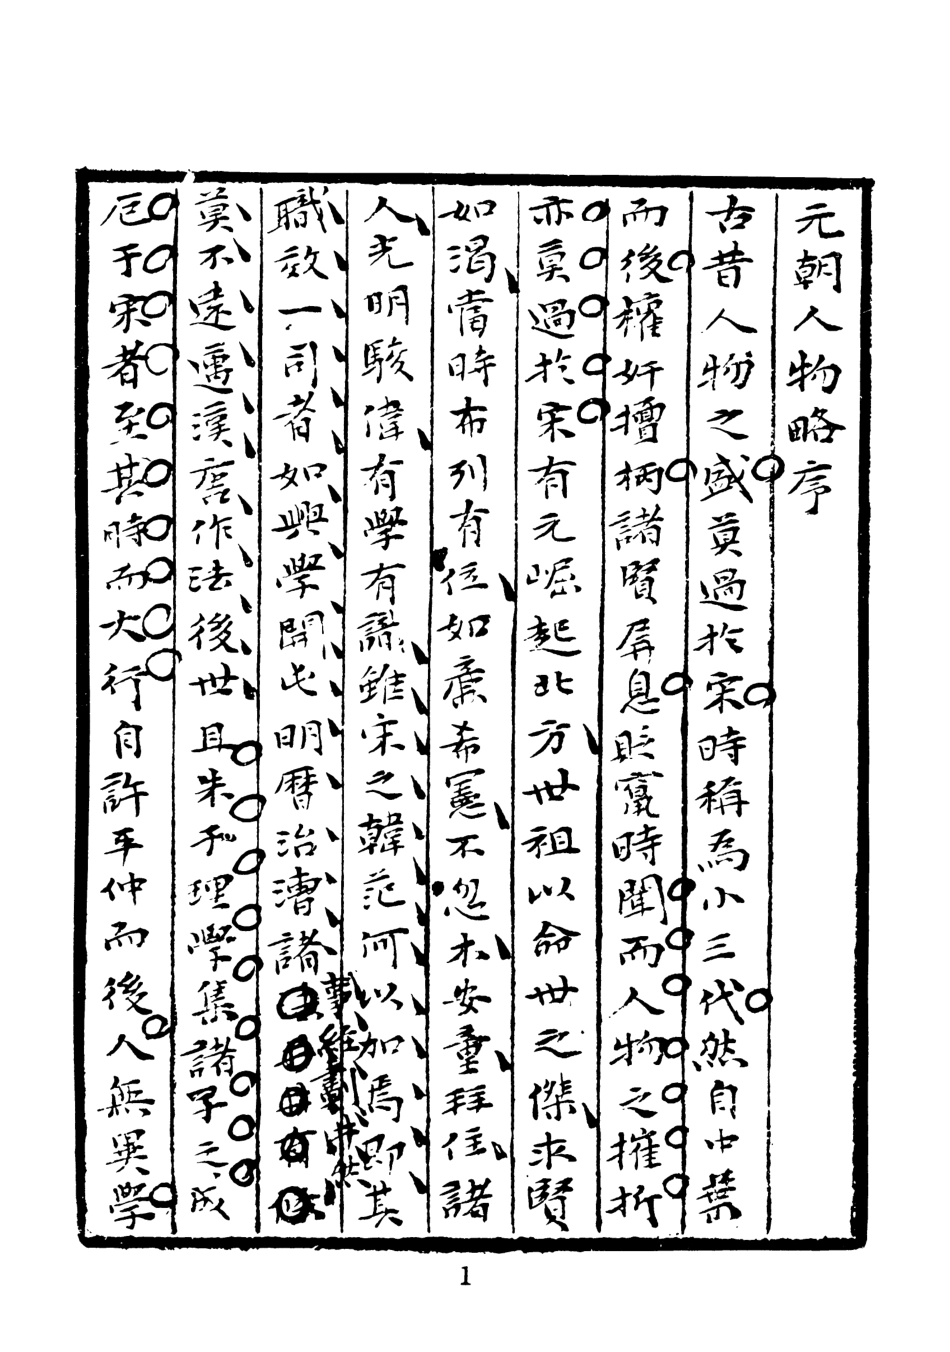 元朝人物略序
古昔人物之盛莫過於宋時稱為小三代然自中葉
而後權奸擅柄諸賢屏息貶竄時聞而人物之摧折
亦莫過於宋有元崛起北方世祖以命世之傑求賢
如渴當時布列有位如廉希憲不忽木安童拜住諸
人光明駿偉有學有識雖宋之韓范何以加焉即其
職效一司者如興學開屯明曆治漕諸事經劃井然
莫不遠邁漢唐作法後世且朱子理學集諸子之成
厄于宋者至其時而大行自許平仲而後人無異學
1